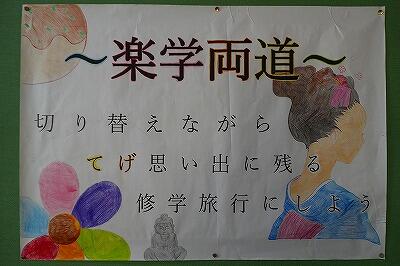 ～楽学両道～
切り替えながら
てげ思い出に残る
修学旅行にしよう